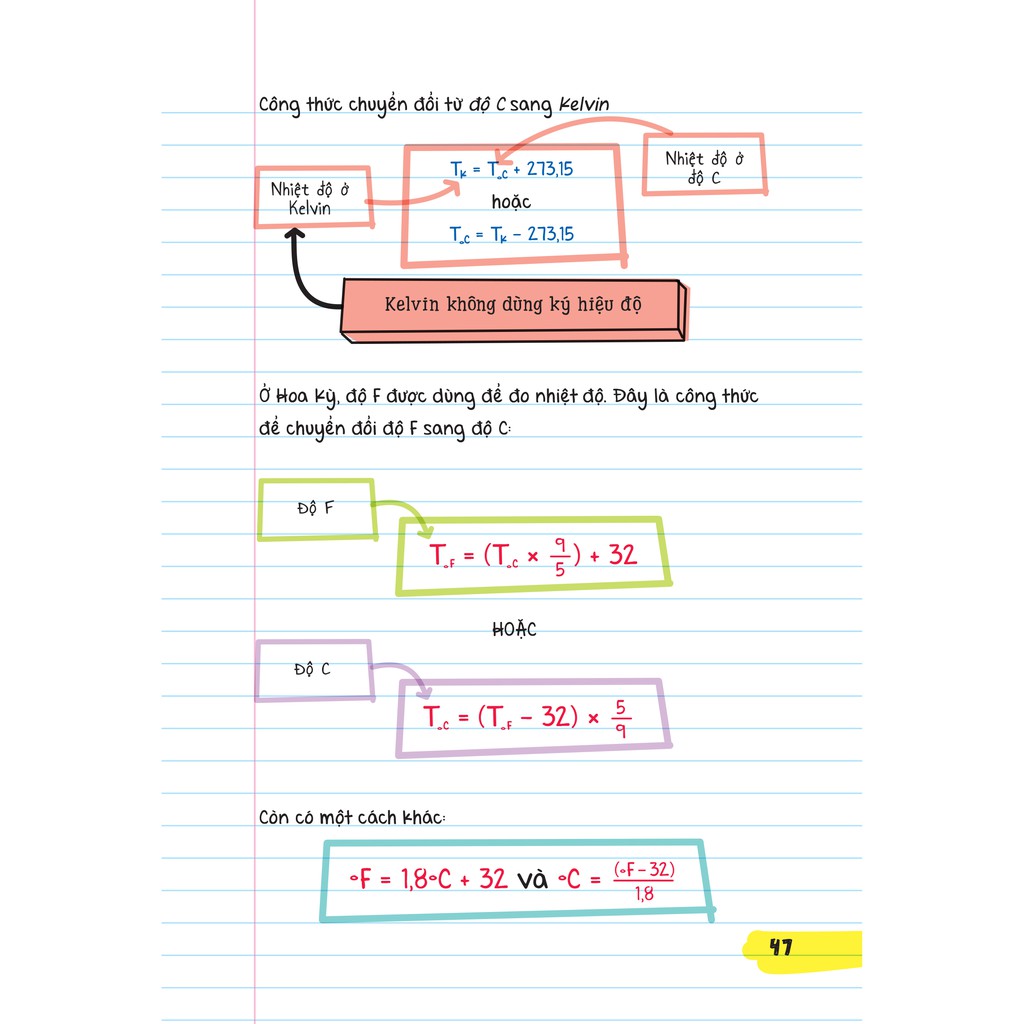 Công thức chuyển đổi từ độ C sang Kelvin
Nhiệt độ ở
độ C
Nhiệt độ ở
Kelvin
T_K = T_°C + 273,15
hoặc
T_°C = T_K – 273,15
Kelvin không dùng ký hiệu độ
Ở Hoa Kỳ, độ F được dùng để đo nhiệt độ. Đây là công thức
để chuyển đổi độ F sang độ C:
Độ F
T_°F = (T_°C × 9/5) + 32
HOẶC
Độ C
T_°C = (T_°F – 32) × 5/9
Còn có một cách khác:
°F = 1,8°C + 32 và °C = (°F – 32)/1,8
47